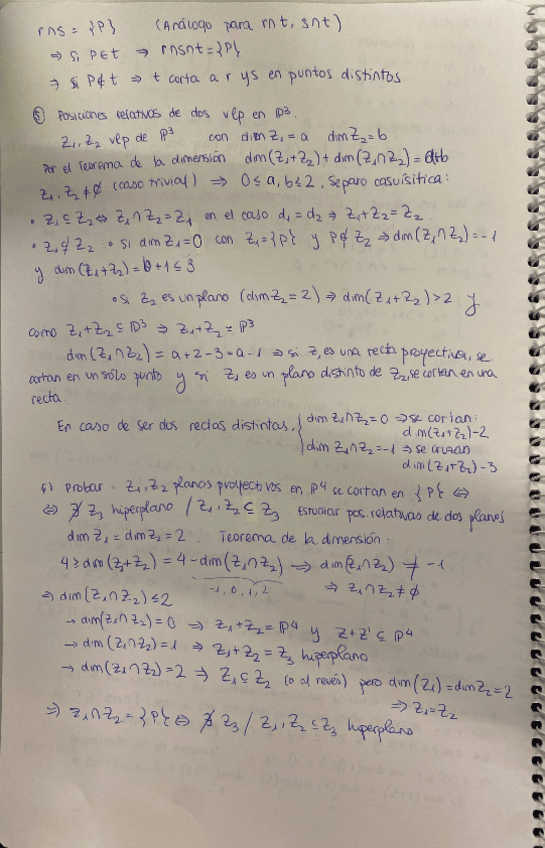 r∩s = {P} (Análogo para r∩t, s∩t)
⇒ si P∈t ⇒ r∩s∩t={P}
⇒ si P∉t ⇒ t corta a r y s en puntos distintos
⑤ Posiciones relativas de dos vlp en ℙ³.
Z₁, Z₂ vlp de ℙ³ con dim Z₁=a dim Z₂=b
Por el Teorema de la dimensión dim(Z₁+Z₂)+dim(Z₁∩Z₂)=a+b
Z₁, Z₂ ≠ ∅ (caso trivial) ⇒ 0≤a,b≤2. Separo casuísitica:
• Z₁⊆Z₂ ⇔ Z₁∩Z₂=Z₁ en el caso d₁=d₂ ⇒ Z₁+Z₂=Z₂
• Z₁⊈Z₂ • si dim Z₁=0 con Z₁={P} y P∉Z₂ ⇒ dim(Z₁∩Z₂)=-1
y dim(Z₁+Z₂)=b+1≤3
• si Z₂ es un plano (dim Z₂=2) ⇒ dim(Z₁+Z₂)>2 y
como Z₁+Z₂⊆ℙ³ ⇒ Z₁+Z₂=ℙ³
dim(Z₁∩Z₂)=a+2-3=a-1 ⇒ si Z₁ es una recta proyectiva, se
cortan en un sólo punto y si Z₁ es un plano distinto de Z₂, se cortan en una
recta.
En caso de ser dos rectas distintas, { dim Z₁∩Z₂=0 ⇒ se cortan:
dim(Z₁+Z₂)=2
dim Z₁∩Z₂=-1 ⇒ se cruzan
dim(Z₁+Z₂)=3
6) Probar: Z₁, Z₂ planos proyectivos en ℙ⁴ se cortan en {P} ⇔
⇔ ∄ Z₃ hiperplano / Z₁, Z₂ ⊆ Z₃ Estudiar pos. relativas de dos planos
dim Z₁=dim Z₂=2. Teorema de la dimensión:
4≥dim(Z₁+Z₂)=4-dim(Z₁∩Z₂) ⇒ dim(Z₁∩Z₂)≠-1
-1, 0, 1, 2 ⇒ Z₁∩Z₂≠∅
⇒ dim(Z₁∩Z₂)≤2
→ dim(Z₁∩Z₂)=0 ⇒ Z₁+Z₂=ℙ⁴ y Z+Z'⊆ℙ⁴
→ dim(Z₁∩Z₂)=1 ⇒ Z₁+Z₂=Z₃ hiperplano
→ dim(Z₁∩Z₂)=2 ⇒ Z₁⊆Z₂ (o al revés) pero dim(Z₁)=dim Z₂=2
⇒ Z₁=Z₂
⇒ Z₁∩Z₂={P} ⇔ ∄ Z₃ / Z₁, Z₂⊆Z₃ hiperplano